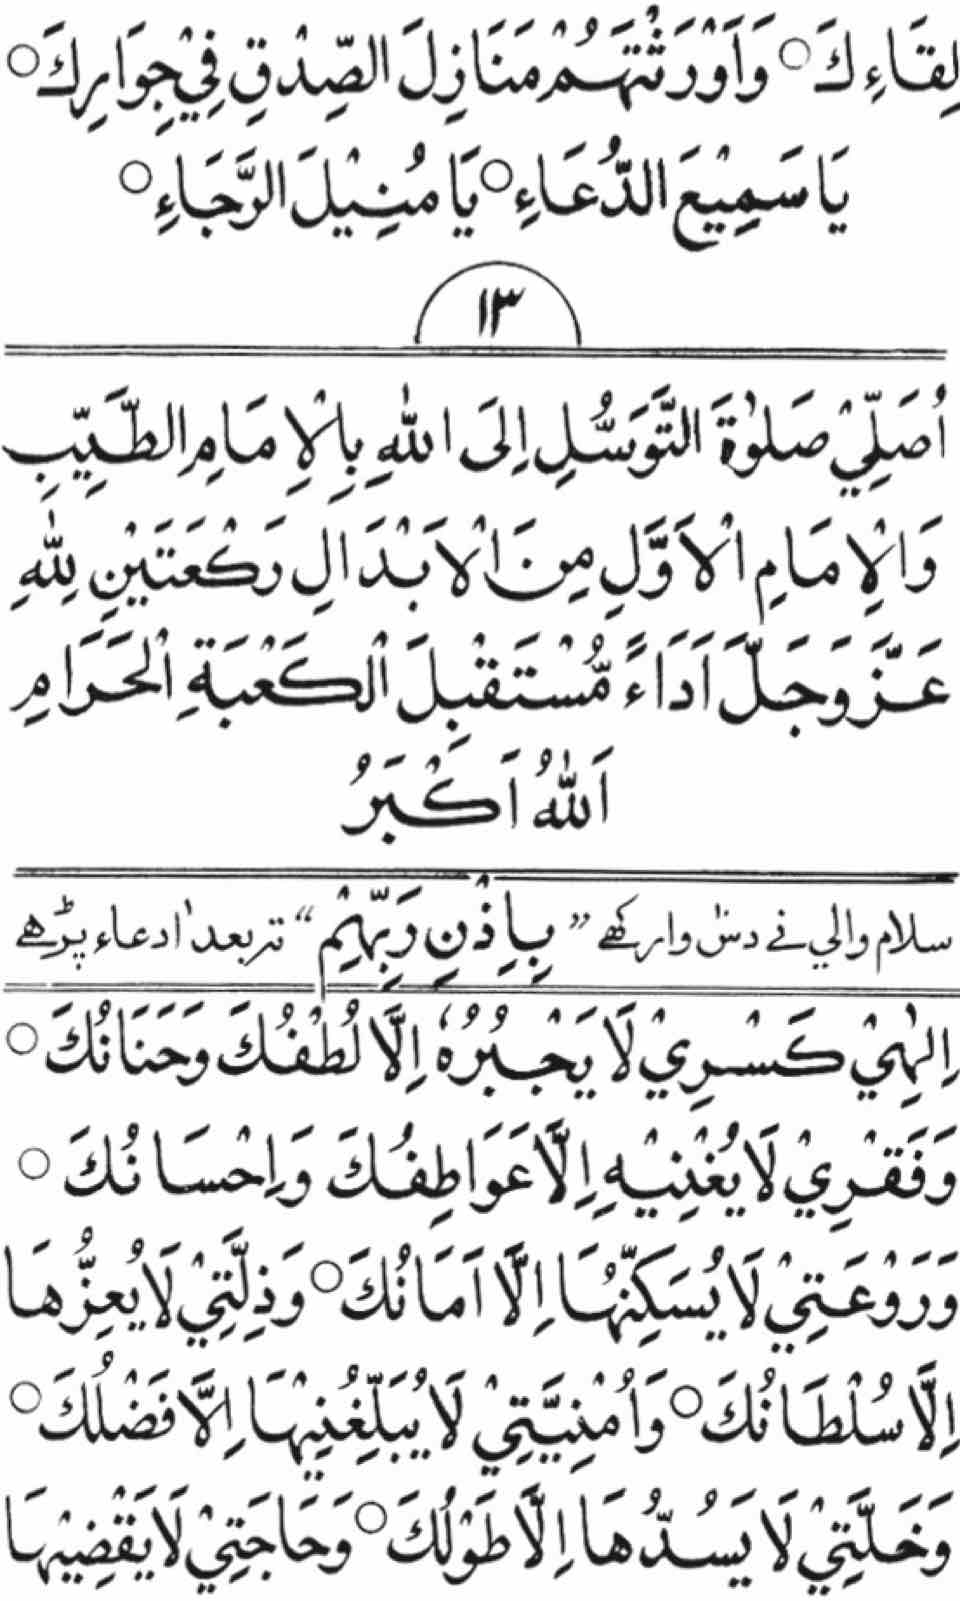 لِقَاءِكَ○ وَاَوْرَثْتَهُمْ مَنَازِلَ الصِّدْقِ فِيْ جِوَارِكَ○
يَا سَمِيْعَ الدُّعَاءِ○ يَا مُنِيْلَ الرَّجَاءِ○
١٣
اُصَلِّيْ صَلٰوةَ التَّوَسُّلِ اِلَى اللهِ بِالْاِمَامِ الطَّيِّبِ
وَالْاِمَامِ الْاَوَّلِ مِنَ الْاَبْدَالِ رَكْعَتَيْنِ لِلّٰهِ
عَزَّ وَجَلَّ اَدَاءً مُّسْتَقْبِلَ الْكَعْبَةِ الْحَرَامِ
اَللهُ اَكْبَرُ
سلام والي نے دس وار كهے “بِاِذْنِ رَبِّهِمْ” تر بعد ا دعاء پڑهے
اِلٰهِيْ كَسْرِيْ لَا يَجْبُرُهُ اِلَّا لُطْفُكَ وَحَنَانُكَ○
وَفَقْرِيْ لَا يُغْنِيْهِ اِلَّا عَوَاطِفُكَ وَاِحْسَانُكَ○
وَرَوْعَتِيْ لَا يُسَكِّنُهَا اِلَّا اَمَانُكَ○ وَذِلَّتِيْ لَا يُعِزُّهَا
اِلَّا سُلْطَانُكَ○ وَاُمْنِيَّتِيْ لَا يُبَلِّغُنِيْهَا اِلَّا فَضْلُكَ○
وَخَلَّتِيْ لَا يَسُدُّهَا اِلَّا طَوْلُكَ○ وَحَاجَتِيْ لَا يَقْضِيْهَا